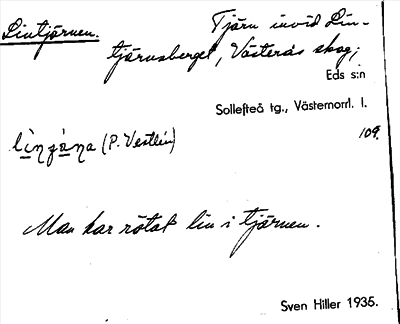 Lintjärnen.
Tjärn invid Lin-
tjärnsberget, Västerås skog;
Eds s:n
Sollefteå tg., Västernorrl. l.
109.
(P. Vestlin)
Man har rötat lin i tjärnen.
Sven Hiller 1935.